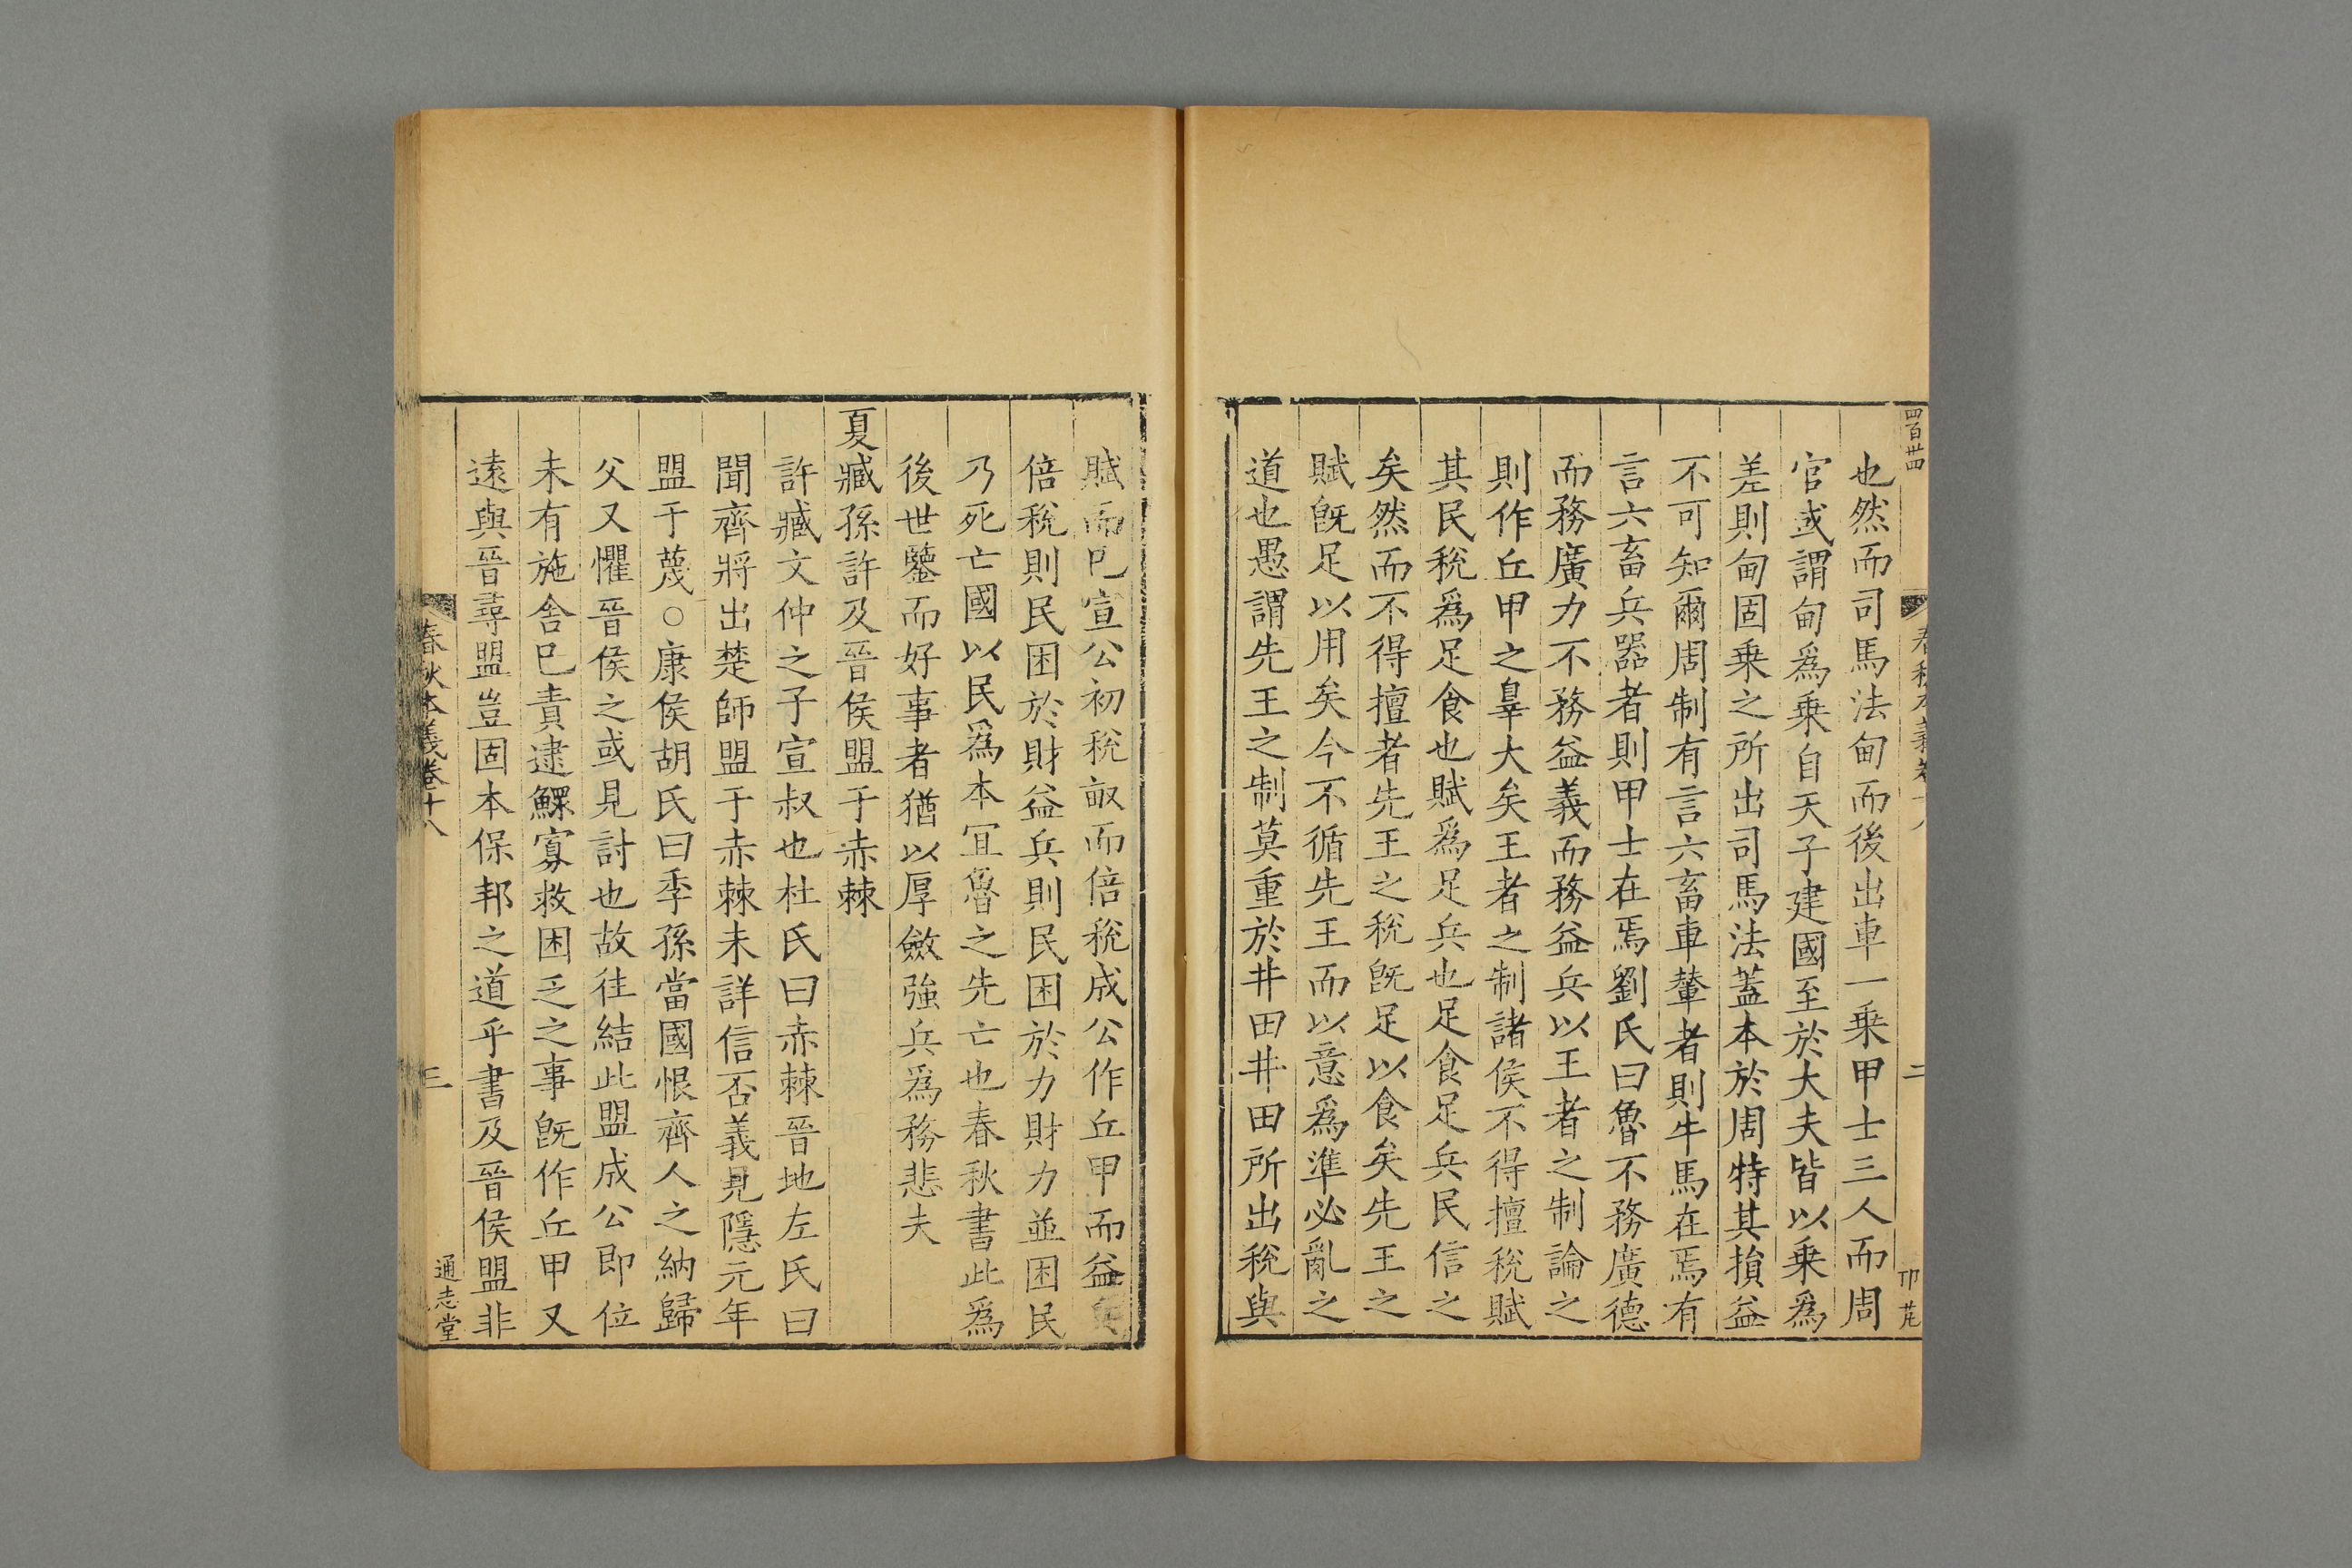 四百卌四
春秋本義卷十八
二
也然而司馬法甸而後出車一乗甲士三人而周
官或謂甸爲乗自天子建國至於大夫皆以乗爲
差則甸固乗之所出司馬法蓋本於周特其損益
不可知爾周制有言六畜車輦者則牛馬在焉有
言六畜兵器者則甲士在焉劉氏曰魯不務廣德
而務廣力不務益義而務益兵以王者之制論之
則作丘甲之辠大矣王者之制諸侯不得擅稅賦
其民稅爲足食也賦爲足兵也足食足兵民信之
矣然而不得擅者先王之稅旣足以食矣先王之
賦旣足以用矣今不循先王而以意爲準必亂之
道也愚謂先王之制莫重於井田井田所出稅與
賦而已宣公初稅畝而倍稅成公作丘甲而益兵
倍稅則民困於財益兵則民困於力財力並困民
乃死亡國以民爲本冝魯之先亡也春秋書此爲
後世鑒而好事者猶以厚斂強兵爲務悲夫
夏臧孫許及晉侯盟于赤棘
許臧文仲之子宣叔也杜氏曰赤棘晉地左氏曰
聞齊將出楚師盟于赤棘未詳信否義見隱元年
盟于蔑○康侯胡氏曰季孫當國恨齊人之納歸
父又懼晉侯之或見討也故徃結此盟成公即位
未有施舍已責逮鰥寡救困乏之事旣作丘甲又
遠與晉尋盟豈固本保邦之道乎書及晉侯盟非
春秋本義卷十八
三
通志堂